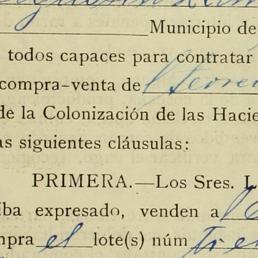 Municipio de
todos capaces para contratar
compra-venta de l terre
de la Colonización de las Hacie
as siguientes cláusulas:
PRIMERA.—Los Sres. L
iba expresado, venden a
mpra el lote(s) núm tre